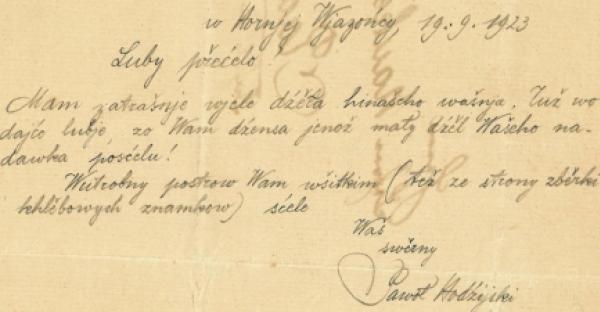 w Hornjej Wjazońcy, 19.9.1923
Luby přećelo!
Mam zatrašnje wjele dźěła hinašeho wašnja. Tuž wo
dajće lubje, zo Wam dźensa jenož mały dźěl Wašeho na-
dawka pósćelu!
Wutrobny postrow Wam wšitkim (též ze strony zběrki
khlěbowych znamkow) sćele
Waš
swěrny
Pawoł Hodźijski